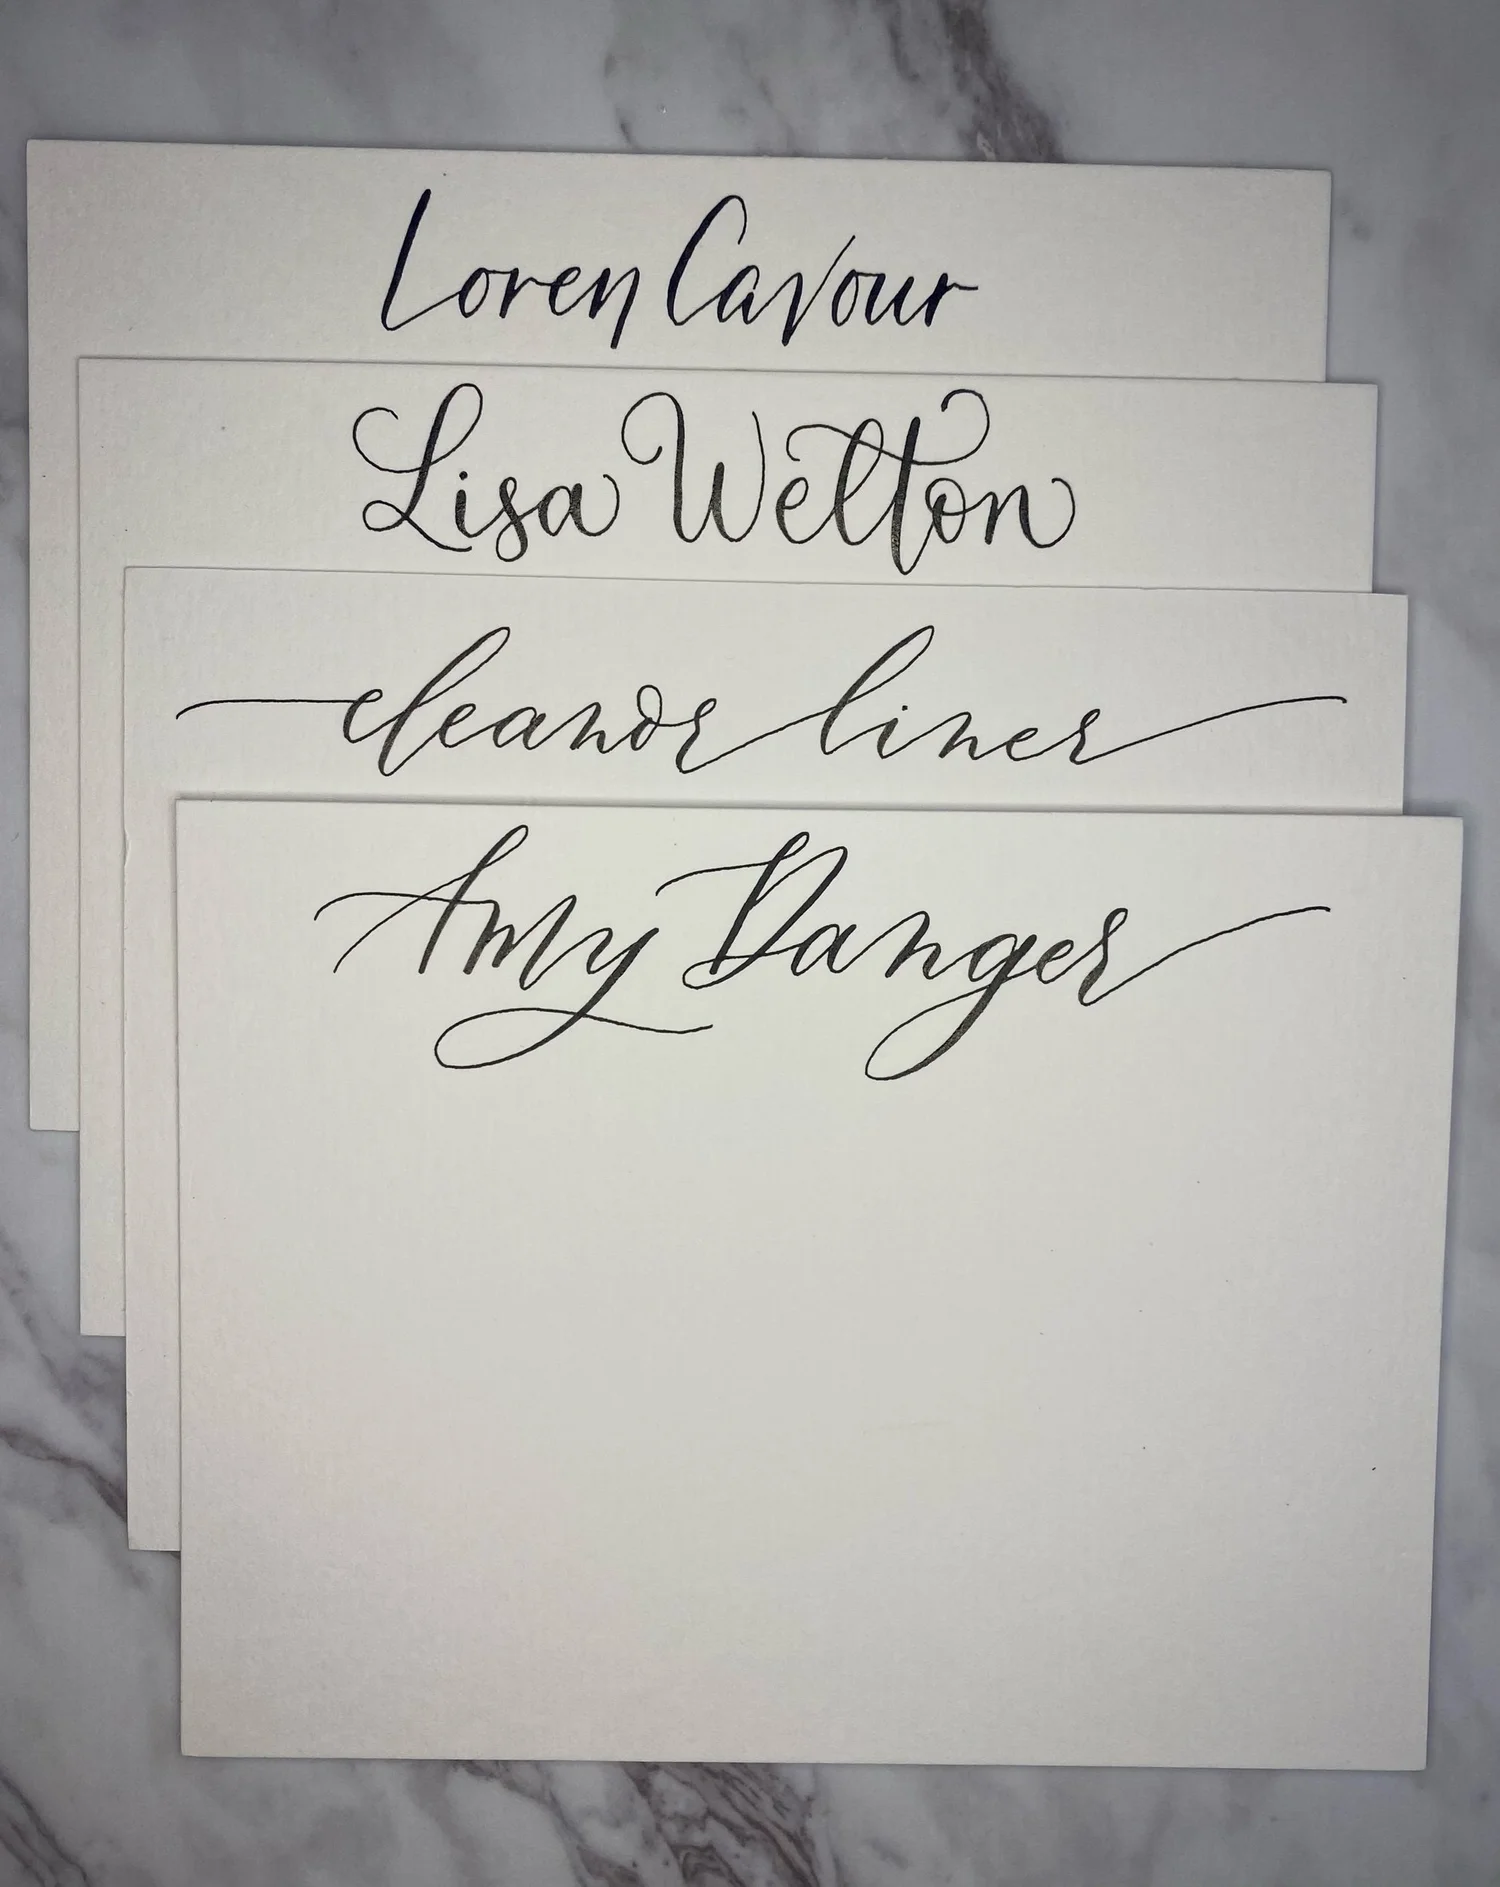 Loren Cavour
Lisa Welton
eleanor liner
Amy Danger